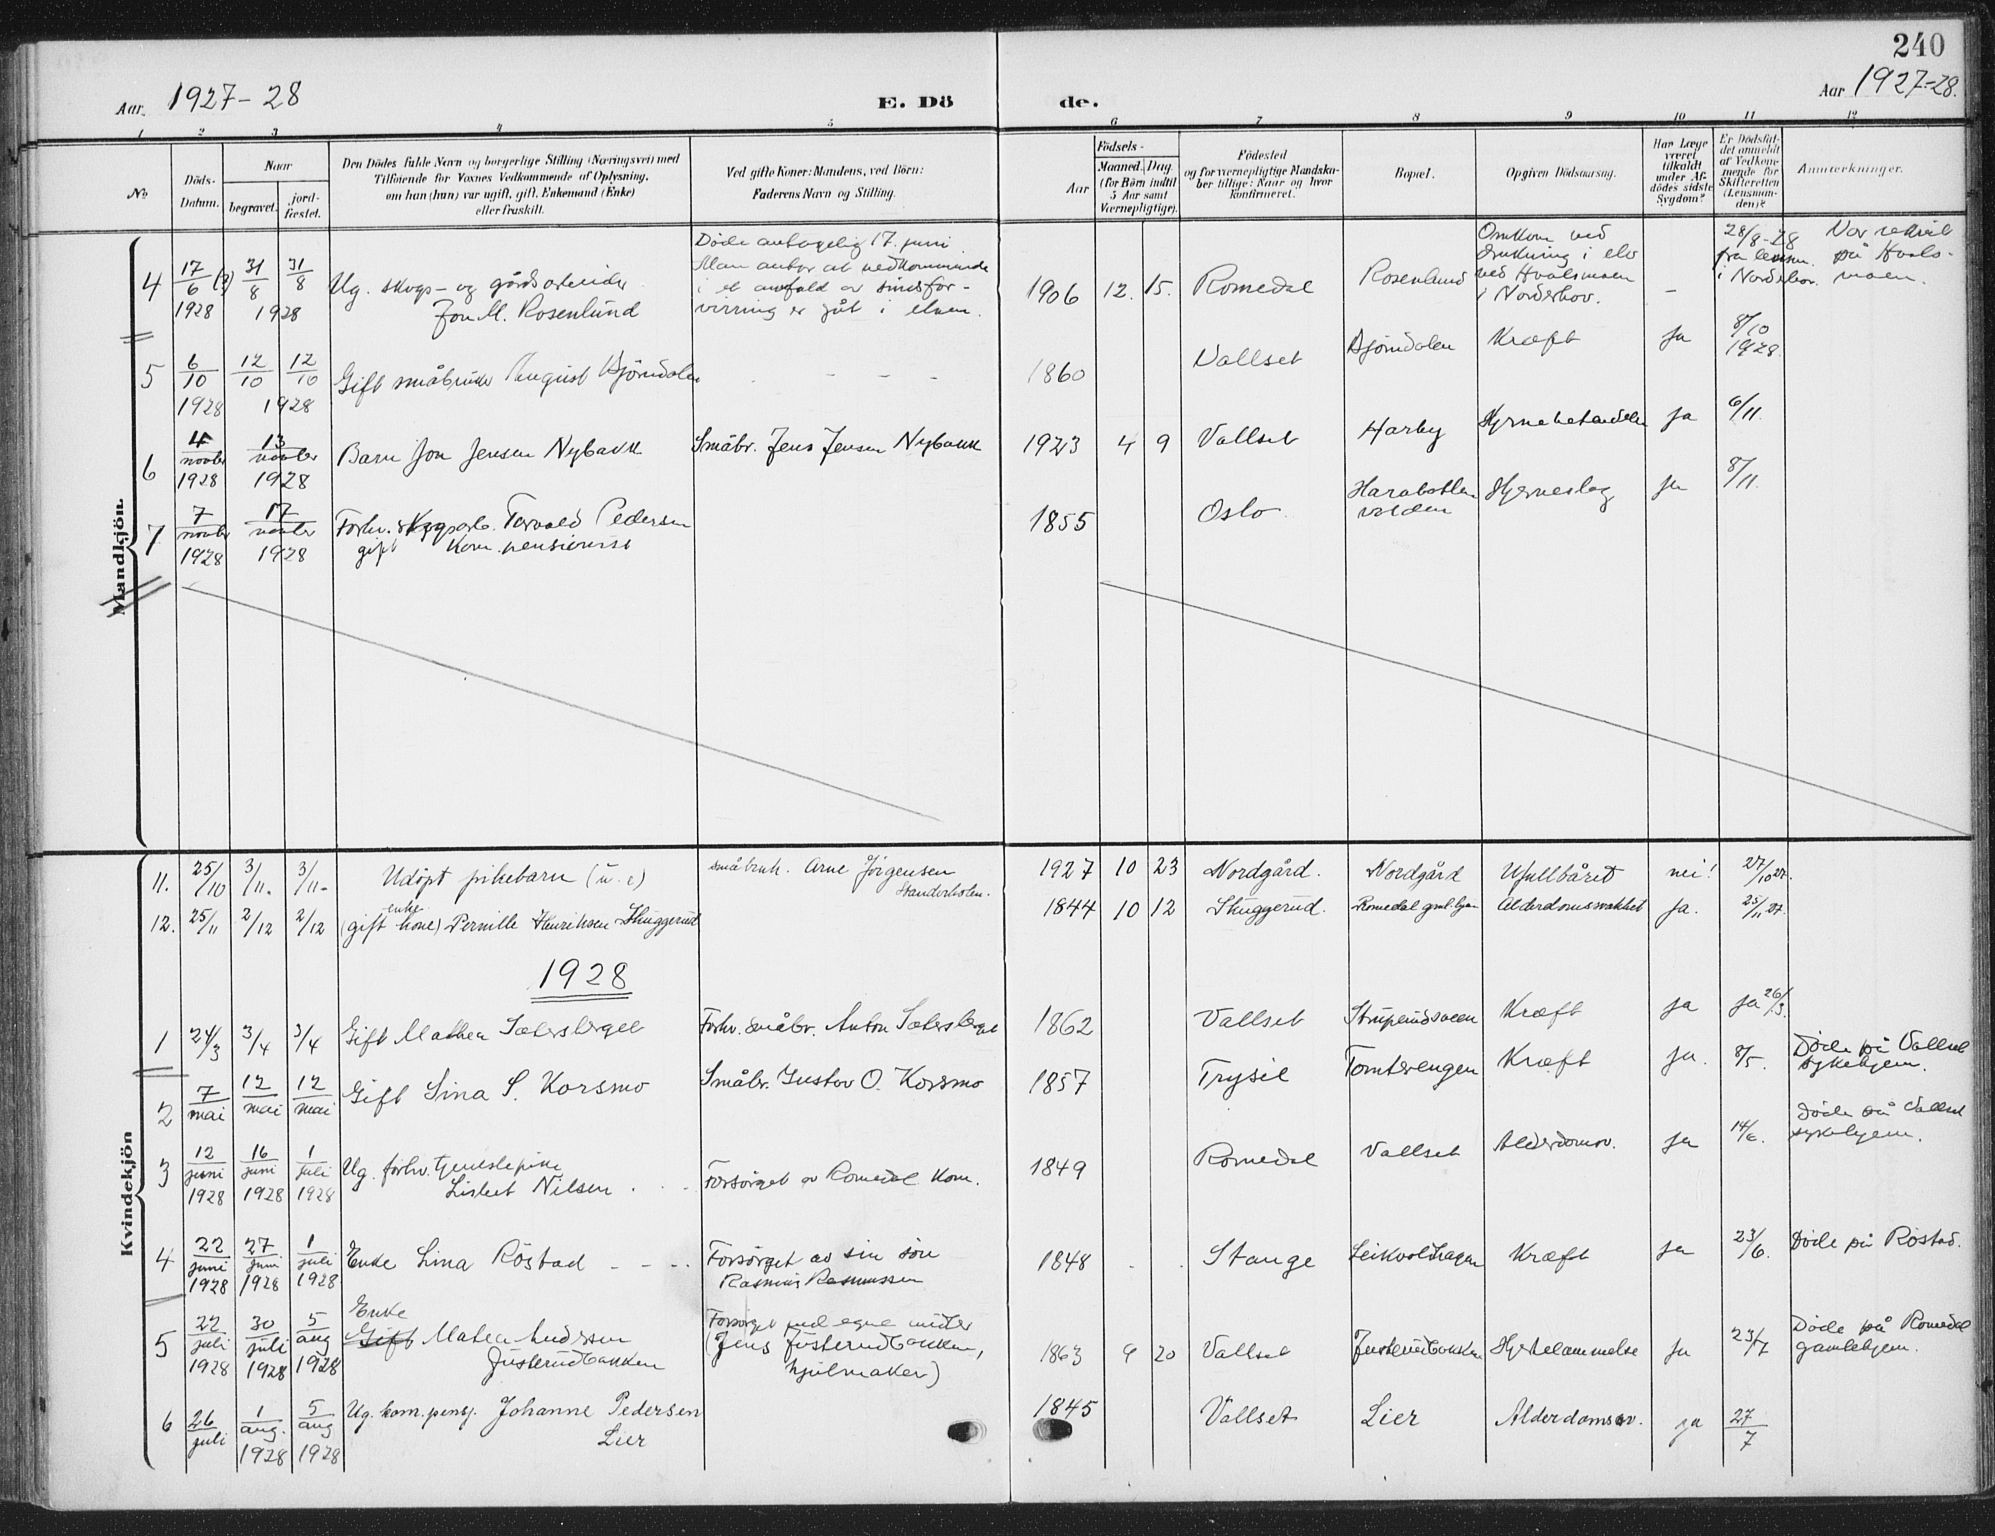 240
Aar 1927-28
E. Dö de.
Aar 1927-28.
1 2 3 4 5 6 7 8 9 10 11 12
No
Döds-Datum.
Naar
begravet.
jord-fæstet.
Den Dödes fulde Navn og borgerlige Stilling (Næringsvei) med
Tilföiende for Voxnes Vedkommende af Oplysning,
om han (hun) var ugift, gift, Enkemand (Enke)
eller fraskilt.
Ved gifte Koner: Mandens, ved Börn:
Faderens Navn og Stilling.
Födsels-
Aar
Maaned. Dag.
(for Börn indtil
5 Aar samt
Værnepligtige).
Födested
og for værnepligtige Mandska-
ber tillige: Naar og hvor
konfirmeret.
Bopæl.
Opgiven Dödsaarsag.
Har Læge
været
tilkaldt
under Af-
dödes sidste
Sygdom?
Er Dödsfal-
det anmeldt
af Vedkom-
mende for
Skifteretten
(Lensman-
den)?
Anmærkninger.
Mandkjön.
4 17/6 (?) 1928 31/8 31/8 1928
Ug. skogs- og gårdsarbeider
Jon M. Rosenlund
Döde antagelig 17. juni
Man antar at vedkommende
i et anfald av sindsfor-
virring er gåt i elven.
1906 12. 15. Romedal Rosenlund
Omkom ved
drukning i elv
ved Hvalsmoen
i Norderhov.
-
28/8-28
fra lensm.
i Norderhov.
Var rekrut
på Hvals-
moen.
5 6/10 1928 12/10 12/10 1928
Gift småbruker August Björndalen - - - -
1860 Vallset Björndalen Kræft ja 8/10 1928.
6 4/novbr 1928 13/novbr 1928
Barn Jon Jensen Nybakk Småbr. Jens Jensen Nybakk
1923 4 9 Vallset Harby ja 6/11.
7 7/novbr 1928 17/novbr 1928
Forhv. skogsarb. Torvald Pedersen
gift Kom. pensionist
1855 Oslo Hjerneslag ja 8/11.
Kvindekjön
11. 25/10 3/11. 3/11. Udöpt pikebarn (u. e) småbruk. Arne Jörgensen
Standerholen.
1927 10 23 Nordgård. Nordgård Ufullbåret nei! 27/10 27.
12. 25/11 2/12 2/12 enke
(gift kone) Pernille Henriksen Skuggerud
1844 10 12 Skuggerud. Romedal gml. hjem Alderdomssvakhet ja. 25/11 27.
1928
1 24/3 3/4 3/4 Gift Mathea Sætersberget Forhv. småbr. Anton Sætersberget
1862 Vallset Kræft ja ja 26/3.
2 7/mai 12/mai 12/mai Gift Lina S. Korsmo Småbr. Gustav O. Korsmo
1857 Trysil Tomterengen Kræft ja. 8/5. Döde på Vallset
sykehjem.
3 12/juni 1928 16/juni 1928 1/juli 1928
Ug. forhv. tjenestepike
Lisbet Nilsen . . Forsörget av Romedal Kom.
1849 Romedal Vallset Alderdomsv. ja 14/6. Döde på Vallset
sykehjem.
4 22/juni 1928 27/juni 1928 1/juli 1928
Enke Lina Röstad - - - Forsörget av sin sön
Rasmus Rasmussen
1848 Stange Kræft ja 23/6. Döde på Röstad.
5 22/juli 1928 30/juli 1928 5/aug 1928
Enke
Gift Mathea Andersen
Justerudbakken
Forsörget med egne midler
(Jens Justerudbakken,
hjulmaker)
1863 9 20 Vallset Justerudbakken Hjertelammelse ja 23/7 Döde på Romedal
gamlehjem.
6 26/juli 1/aug. 1928 5/aug 1928
Ug. kom. pensj. Johanne Pedersen
Lier
1845 Vallset Lier Alderdomsv. ja 27/7